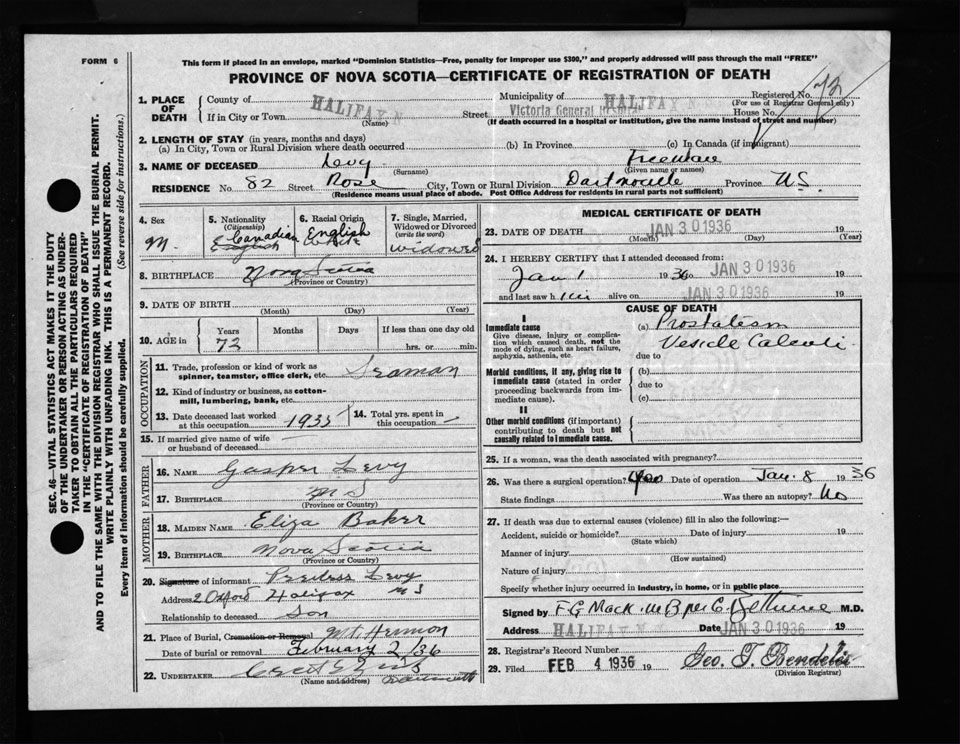 FORM 6
This form if placed in an envelope, marked "Dominion Statistics—Free, penalty for improper use $300," and properly addressed will pass through the mail "FREE"
PROVINCE OF NOVA SCOTIA—CERTIFICATE OF REGISTRATION OF DEATH
SEC. 46—VITAL STATISTICS ACT MAKES IT THE DUTY
OF THE UNDERTAKER OR PERSON ACTING AS UNDER-
TAKER TO OBTAIN ALL THE PARTICULARS REQUIRED
IN THE "CERTIFICATE OF REGISTRATION OF DEATH"
AND TO FILE THE SAME WITH THE DIVISION REGISTRAR WHO SHALL ISSUE THE BURIAL PERMIT.
WRITE PLAINLY WITH UNFADING INK. THIS IS A PERMANENT RECORD.
Every item of information should be carefully supplied. (See reverse side for instructions.)
1. PLACE OF DEATH
County of
If in City or Town HALIFAX N
(Name)
Municipality of HALIFAX N
Registered No. 72
(For use of Registrar General only)
Street Victoria General House No.
(If death occurred in a hospital or institution, give the name instead of street and number)
2. LENGTH OF STAY (in years, months and days)
(a) In City, Town or Rural Division where death occurred (b) In Province (c) In Canada (if immigrant)
3. NAME OF DECEASED Levy Freeman
(Surname) (Given name or names)
RESIDENCE No. 82 Street Rose City, Town or Rural Division Dartmouth Province N.S.
(Residence means usual place of abode. Post Office Address for residents in rural parts not sufficient)
4. Sex M.
5. Nationality (Citizenship) Canadian English
6. Racial Origin English White
7. Single, Married, Widowed or Divorced (write the word) widowed
8. BIRTHPLACE Nova Scotia
(Province or Country)
9. DATE OF BIRTH
(Month) (Day) (Year)
10. AGE in Years 72 Months Days If less than one day old hrs. or min.
OCCUPATION
11. Trade, profession or kind of work as spinner, teamster, office clerk, etc. Seaman
12. Kind of industry or business, as cotton-mill, lumbering, bank, etc.
13. Date deceased last worked at this occupation 1935
14. Total yrs. spent in this occupation
15. If married give name of wife or husband of deceased
FATHER
16. NAME Gasper Levy
17. BIRTHPLACE N S
(Province or Country)
MOTHER
18. MAIDEN NAME Eliza Baker
19. BIRTHPLACE Nova Scotia
(Province or Country)
20. Signature of informant Levy
Address 2 Oxford Halifax N S
Relationship to deceased Son
21. Place of Burial, Cremation or Removal Mt. Hermon
Date of burial or removal February 2/36
22. UNDERTAKER
(Name and address)
MEDICAL CERTIFICATE OF DEATH
23. DATE OF DEATH JAN 30 1936 19
(Month) (Day) (Year)
24. I HEREBY CERTIFY that I attended deceased from:
Jan 1 1936 to JAN 30 1936 19
and last saw him alive on JAN 30 1936 19
CAUSE OF DEATH
I
Immediate cause
Give disease, injury or complication which caused death, not the mode of dying, such as heart failure, asphyxia, asthenia, etc.
(a) Vesicle Calculi
due to
Morbid conditions, if any, giving rise to immediate cause (stated in order proceeding backwards from immediate cause).
(b)
due to
(c)
II
Other morbid conditions (if important) contributing to death but not causally related to immediate cause.
25. If a woman, was the death associated with pregnancy?
26. Was there a surgical operation? Yes Date of operation Jan. 8 1936
State findings Was there an autopsy? No
27. If death was due to external causes (violence) fill in also the following:—
Accident, suicide or homicide? Date of injury 19
(State which)
Manner of injury
(How sustained)
Nature of injury
Specify whether injury occurred in industry, in home, or in public place
Signed by F G Mack M.B per C. M.D.
Address HALIFAX N Date JAN 30 1936
28. Registrar's Record Number
29. Filed FEB 4 1936 19
(Division Registrar)